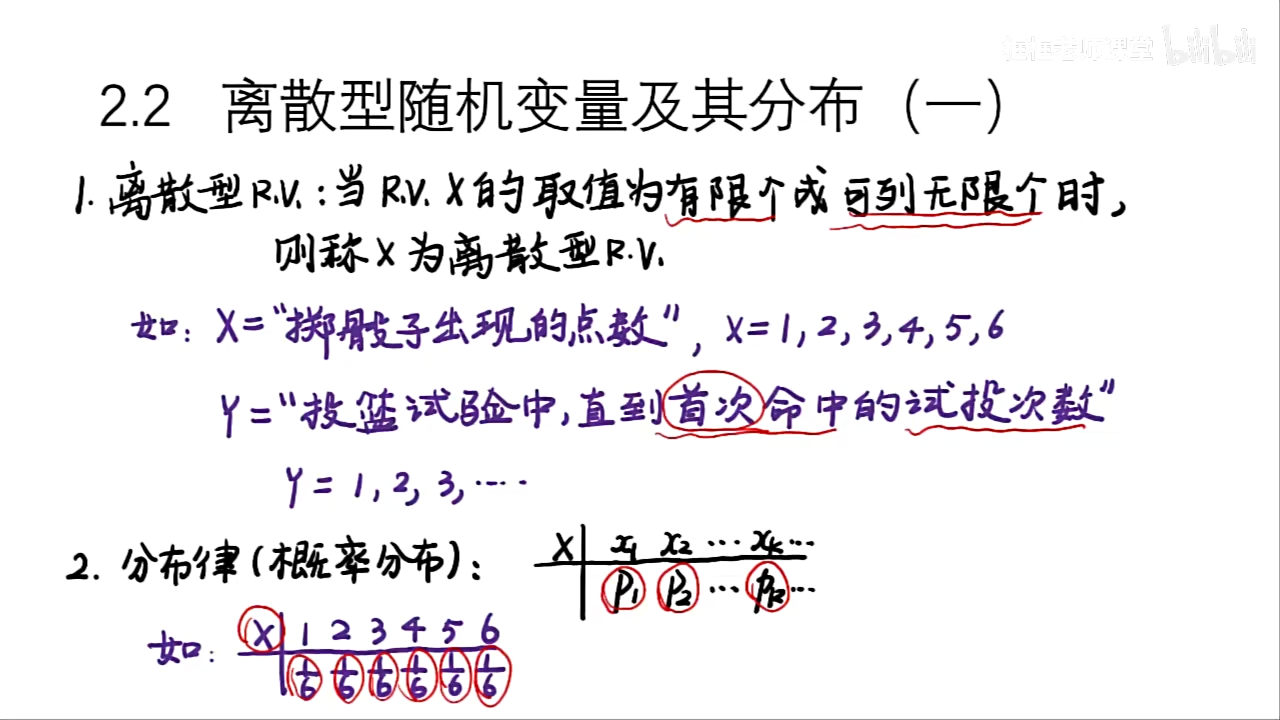 bilibili
2.2 离散型随机变量及其分布（一）
1. 离散型R.V.：当 R.V. X 的取值为有限个或可列无限个时，
则称 X 为离散型R.V.
如：X=“掷骰子出现的点数”，X=1,2,3,4,5,6
Y=“投篮试验中，直到首次命中的试投次数”
Y=1,2,3,……
2. 分布律（概率分布）：
X x₁ x₂ … xₖ …
p₁ p₂ … pₖ …
如：X 1 2 3 4 5 6
1/6 1/6 1/6 1/6 1/6 1/6